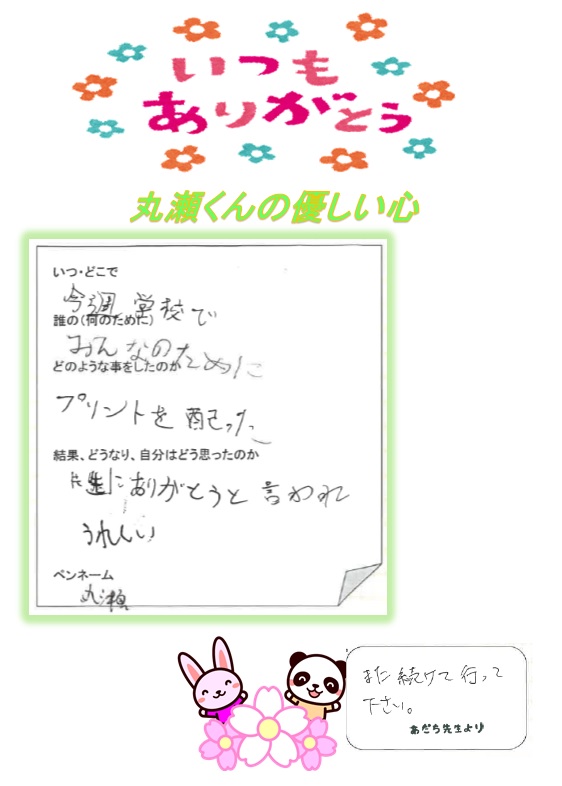 いつも
ありがとう
丸瀬くんの優しい心
いつ・どこで
今週 学校で
誰の（何のために）
みんなのために
どのような事をしたのか
プリントを配った
結果、どうなり、自分はどう思ったのか
にありがとうと言われ
うれしい
ペンネーム
丸瀬
また続けて行って
下さい。
あだち先生より